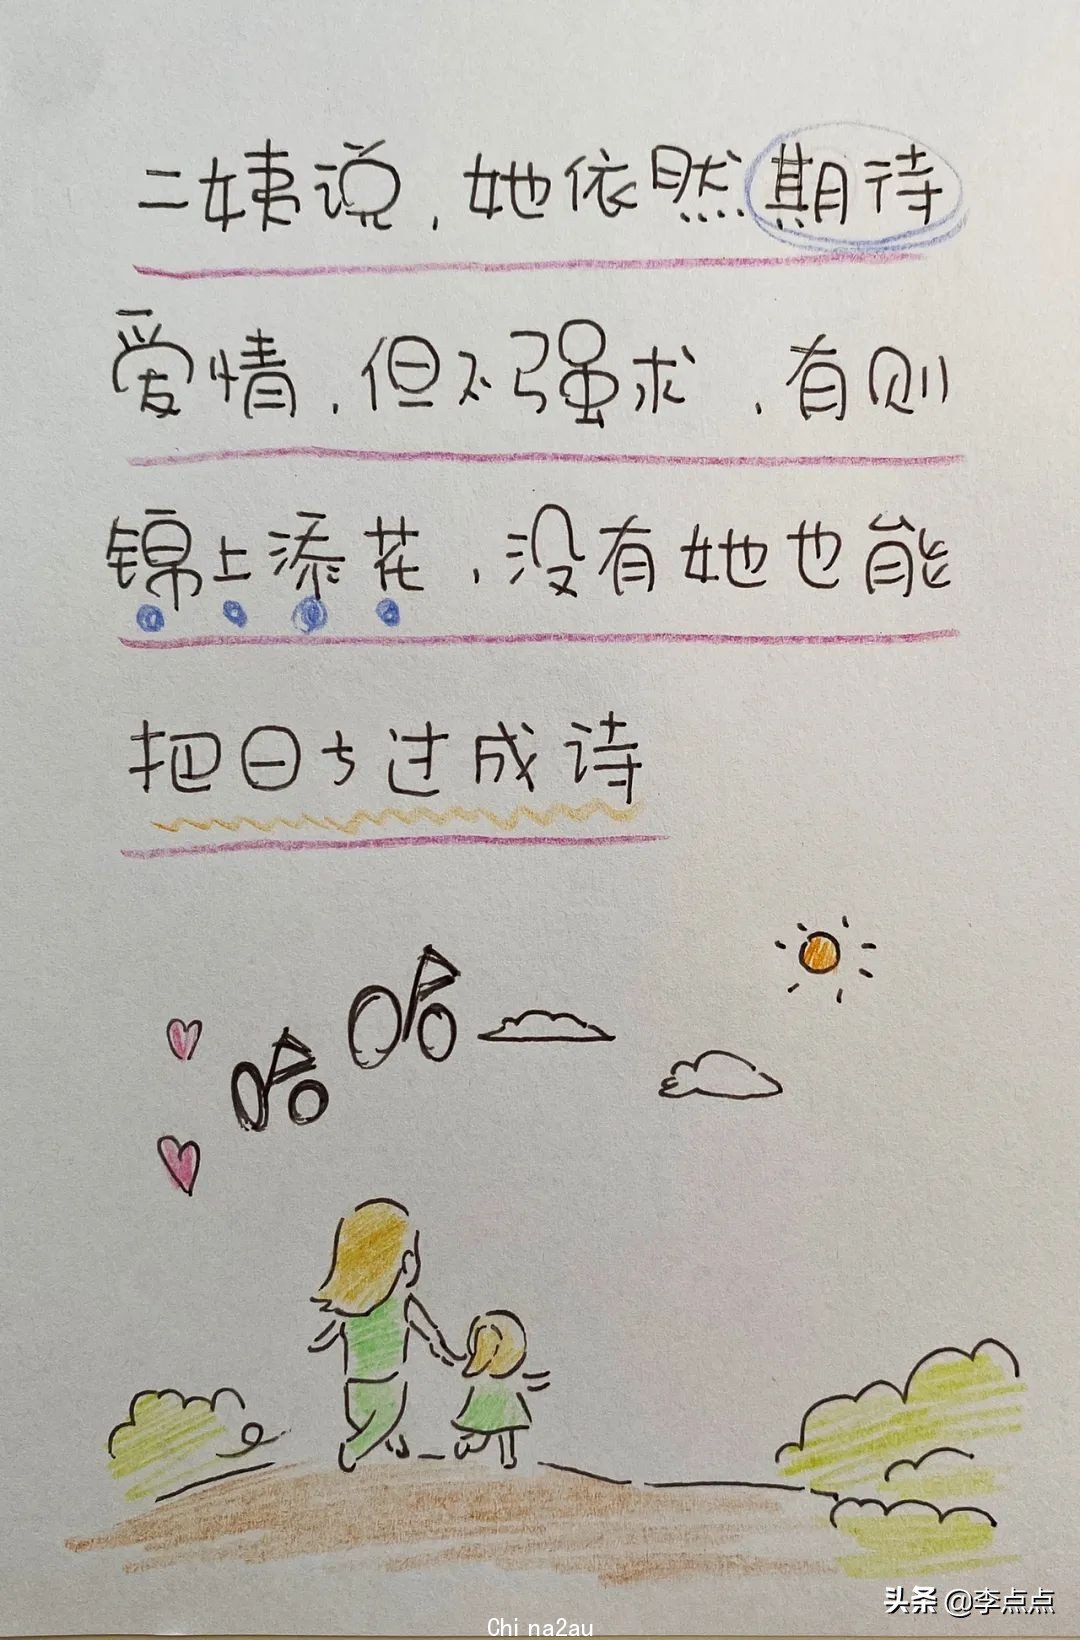 二姨说，她依然期待
爱情，但不强求，有则
锦上添花，没有她也能
把日子过成诗
头条 @李点点
China2au